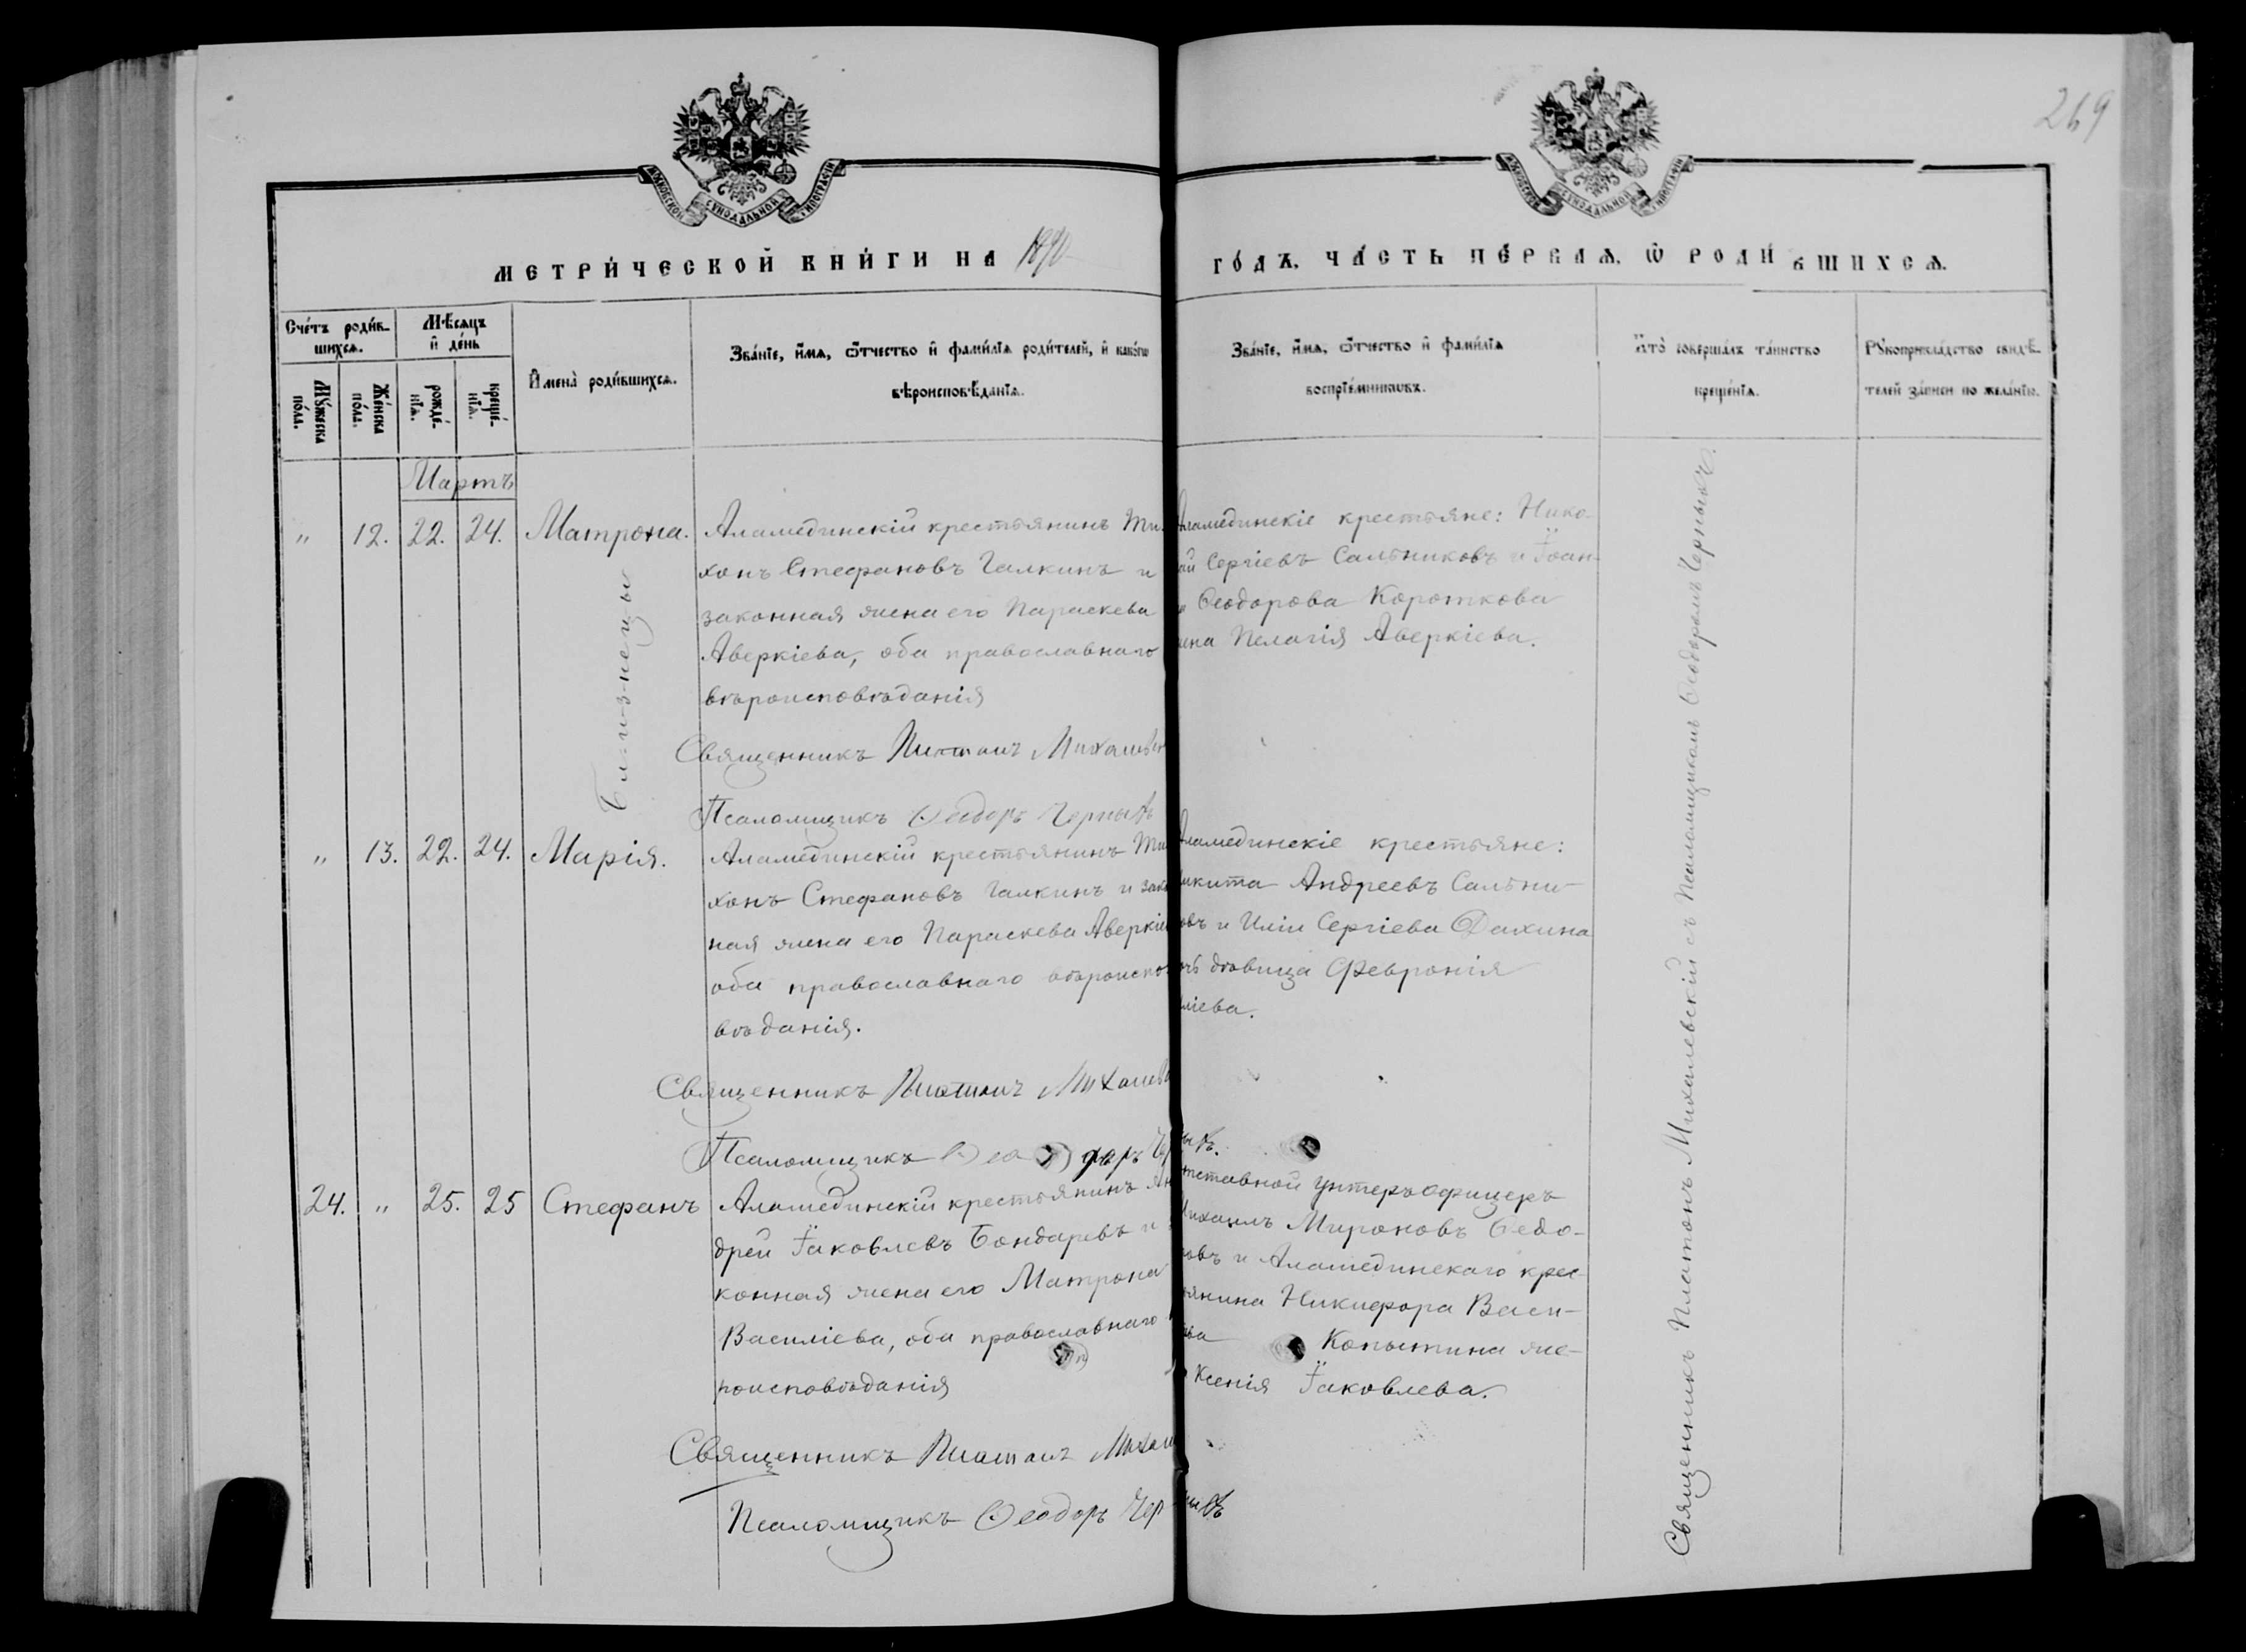 269
МОСКОВСКОЙ СѴНОДАЛЬНОЙ ТИПОГРАФІИ
МОСКОВСКОЙ СѴНОДАЛЬНОЙ ТИПОГРАФІИ
МЕТРИ́ЧЕСКОЙ КНИ́ГИ НА 1890
ГО́ДЪ, ЧА́СТЬ ПЕ́РВАѦ, Ѡ РОДИ́ВШИХСѦ.
Сче́тъ роди́в-
шихсѧ.
Мꙋ́жеска по́ла.
Же́нска по́ла.
Мѣ́сѧцъ
и҆ де́нь
рожде́-
нїѧ.
креще́-
нїѧ.
И҆мена̀ роди́вшихсѧ.
Зва́нїе, и҆́мѧ, ѻ҆́тчество и҆ фами́лїѧ роди́телей, и҆ како́гѡ
вѣроисповѣ́данїѧ.
Зва́нїе, и҆́мѧ, ѻ҆́тчество и҆ фами́лїѧ
воспрїе́мникѡвъ.
Кто̀ соверша́лъ та́инство
креще́нїѧ.
Рꙋкоприкла́дство свидѣ́-
телей за́писи по жела́нїю.
Мартъ
" 12. 22. 24. Матрона.
Аламединскій крестьянинъ Ти-
хонъ Стефановъ Галкинъ и
законная жена его Параскева
Аверкіева, оба православнаго
вѣроисповѣданія
Священникъ Платонъ Михалев
Псаломщикъ Ѳеодоръ Черныхъ
Аламединскіе крестьяне: Нико-
ай Сергіевъ Сальниковъ и Іоан-
Ѳеодорова Короткова
ена Пелагія Аверкіева.
Близнецы
" 13. 22. 24. Марія.
Аламединскій крестьянинъ Ти
хонъ Стефановъ Галкинъ и зако
ная жена его Параскева Аверкіе
оба православнаго вѣроиспо
вѣданія.
Священникъ Платонъ Михалев
Псаломщикъ Ѳеодоръ Черныхъ.
Аламединскіе крестьяне:
икита Андреевъ Сальни-
овъ и Иліи Сергіева Дахина
очь дѣвица Февронія
ліева.
24. " 25. 25 Стефанъ
Аламединскій крестьянинъ Ан
дрей Іаковлевъ Бондаревъ и з
конная жена его Матрона
Василіева, оба православнаго
роисповѣданія
Священникъ Платонъ Михал
Псаломщикъ Ѳеодоръ Черныхъ
тставной унтеръ офицеръ
Михаилъ Мироновъ Ѳедо-
ровъ и Аламединскаго крес-
тьянина Никифора Васи-
ева Копытина же-
Ксенія Іаковлева.
Священникъ Платонъ Михалевскій съ Псаломщикомъ Ѳеодоромъ Черныхъ.